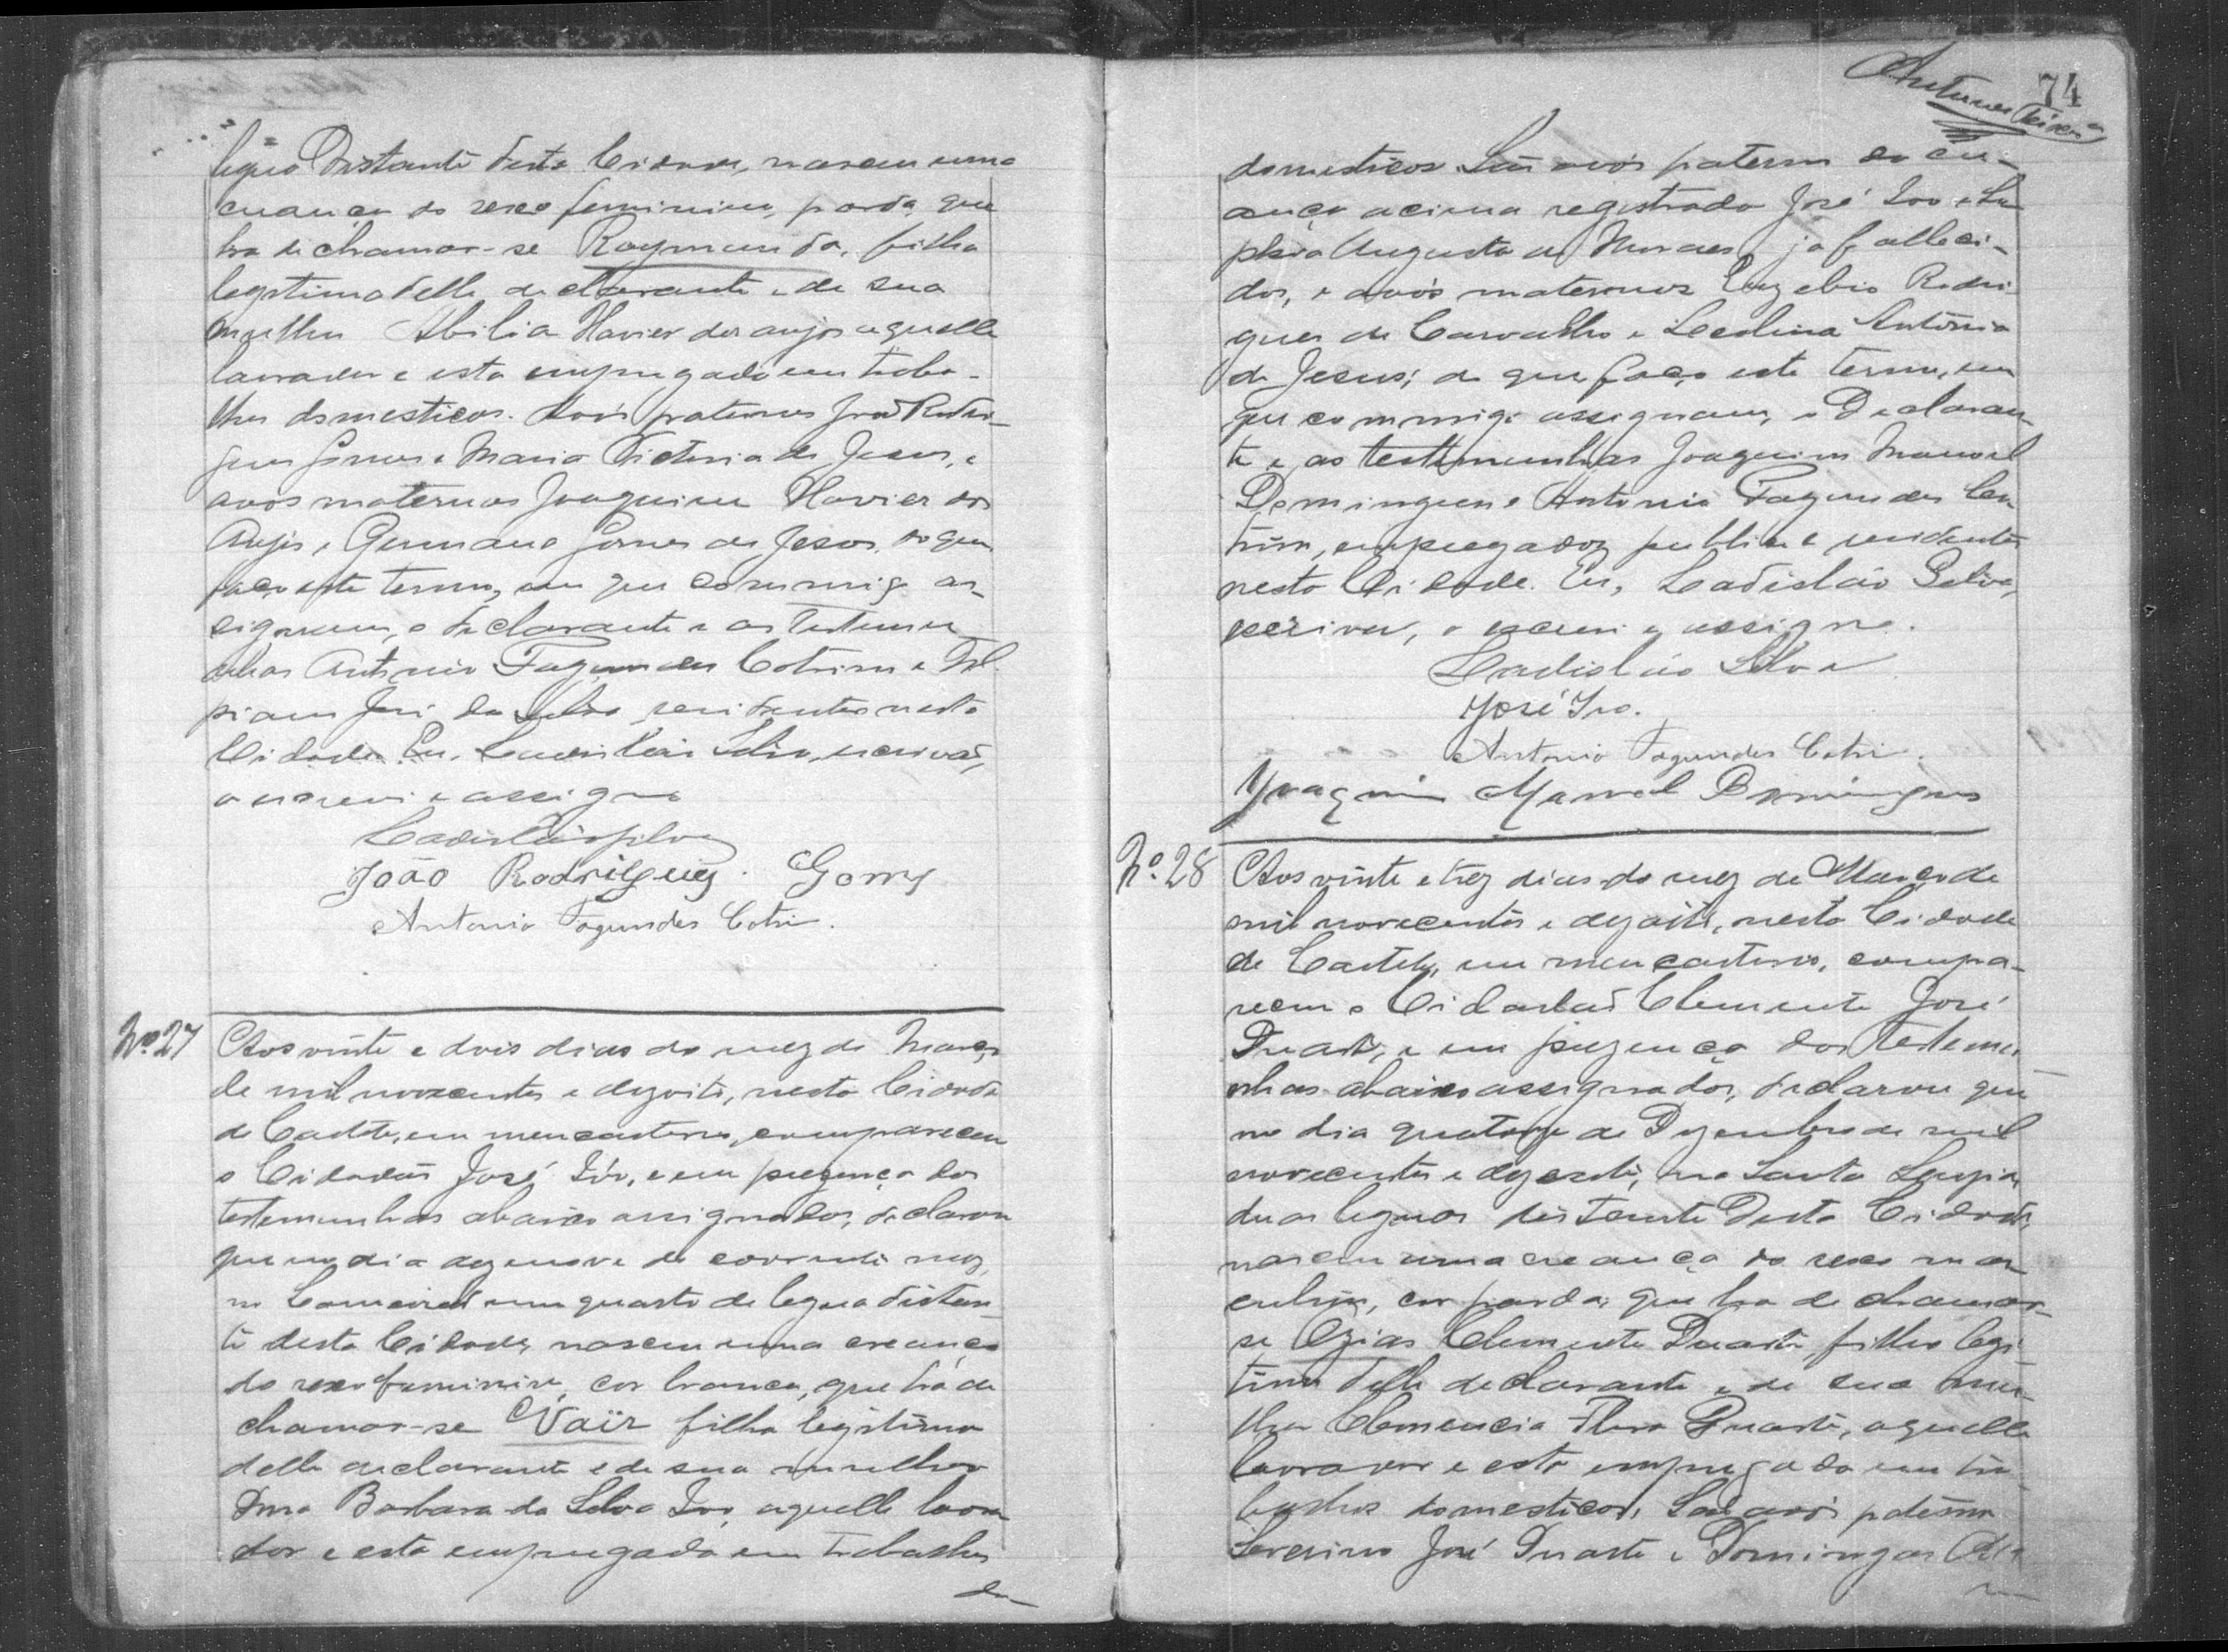 legua distante desta Cidade, nasceu uma
creança do sexo feminino, parda, que
ha de chamar-se Raymunda, filha
legitima delle declarante e de sua
mulher Abilia Xavier dos anjos aquelle
lavrador e esta empregada em traba-
lhos domesticos. Avós paternos José Rodri-
gues Gomes e Maria Victoria de Jesus, e
avós maternos Joaquim Xavier dos
Anjos e Germana Gomes de Jesus, do que
faço este termo, em que commigo as-
signam, o declarante e as testemu-
nhas Antonio Fagundes Cotrim e
José da Silva, residentes nesta
Cidade. Eu, Ladisláo Silva, escrivão,
o escrevi e assigno
Ladisláo Silva
João Rodrigues Gomes
Antonio Fagundes Cotrim.
Nº 27 Aos vinte e dois dias do mez de Março
de mil novecentos e dezoito, nesta Cidade
de Caeteté, em meu cartorio, compareceu
o Cidadão José Ivo, e em presença das
testemunhas abaixo assignadas, declarou
que no dia dezenove do corrente mez,
no um quarto de legua distan-
te desta Cidade, nasceu uma creança
do sexo feminino, cor branca, que há de
chamar-se Naïr filha legitima
delle declarante e de sua mulher
Dona Barbara da Silva Ivo, aquelle lavra-
dor e esta empregada em trabalhos
do-
74
Antunes Teixeira
domesticos. São avós paternos da cre-
ança acima registrada José Ivo e
Augusta de Moraes, ja falleci-
dos, e avós maternos Euzebio Rodri-
gues de Carvalho e Leolina Antonia
de Jesus; de que faço este termo, em
que commigo assignam, o Declaran-
te e as testemunhas Joaquim Manoel
Domingues e Antonio Fagundes Co-
trim, empregados publicos e residentes
nesta Cidade. Eu, Ladisláo Silva,
escrivão, o escrevi e assigno.
Ladisláo Silva
José Ivo.
Antonio Fagundes Cotrim.
Joaquim Manoel Domingues
Nº 28 Aos vinte e trez dias do mez de Março de
mil novecentos e dezoito, nesta Cidade
de Caeteté, em meu cartorio, compa-
receu o Cidadão Clemente José
Duarte, e em prezença das testemu-
nhas abaixo assignadas, declarou que
no dia quatorze de Dezembro de mil
novecentos e dezesete, na Santa Luzia,
duas leguas distante desta Cidade,
nasceu uma creança do sexo mas-
culino, cor parda, que ha de chamar-
se Ozias Clemente Duarte, filho legi-
timo delle declarante e de sua mu-
lher Clemencia Flora Duarte, aquelle
lavrador e esta empregada em tra-
balhos domesticos, São avós paternos
Severino José Duarte e Domingas